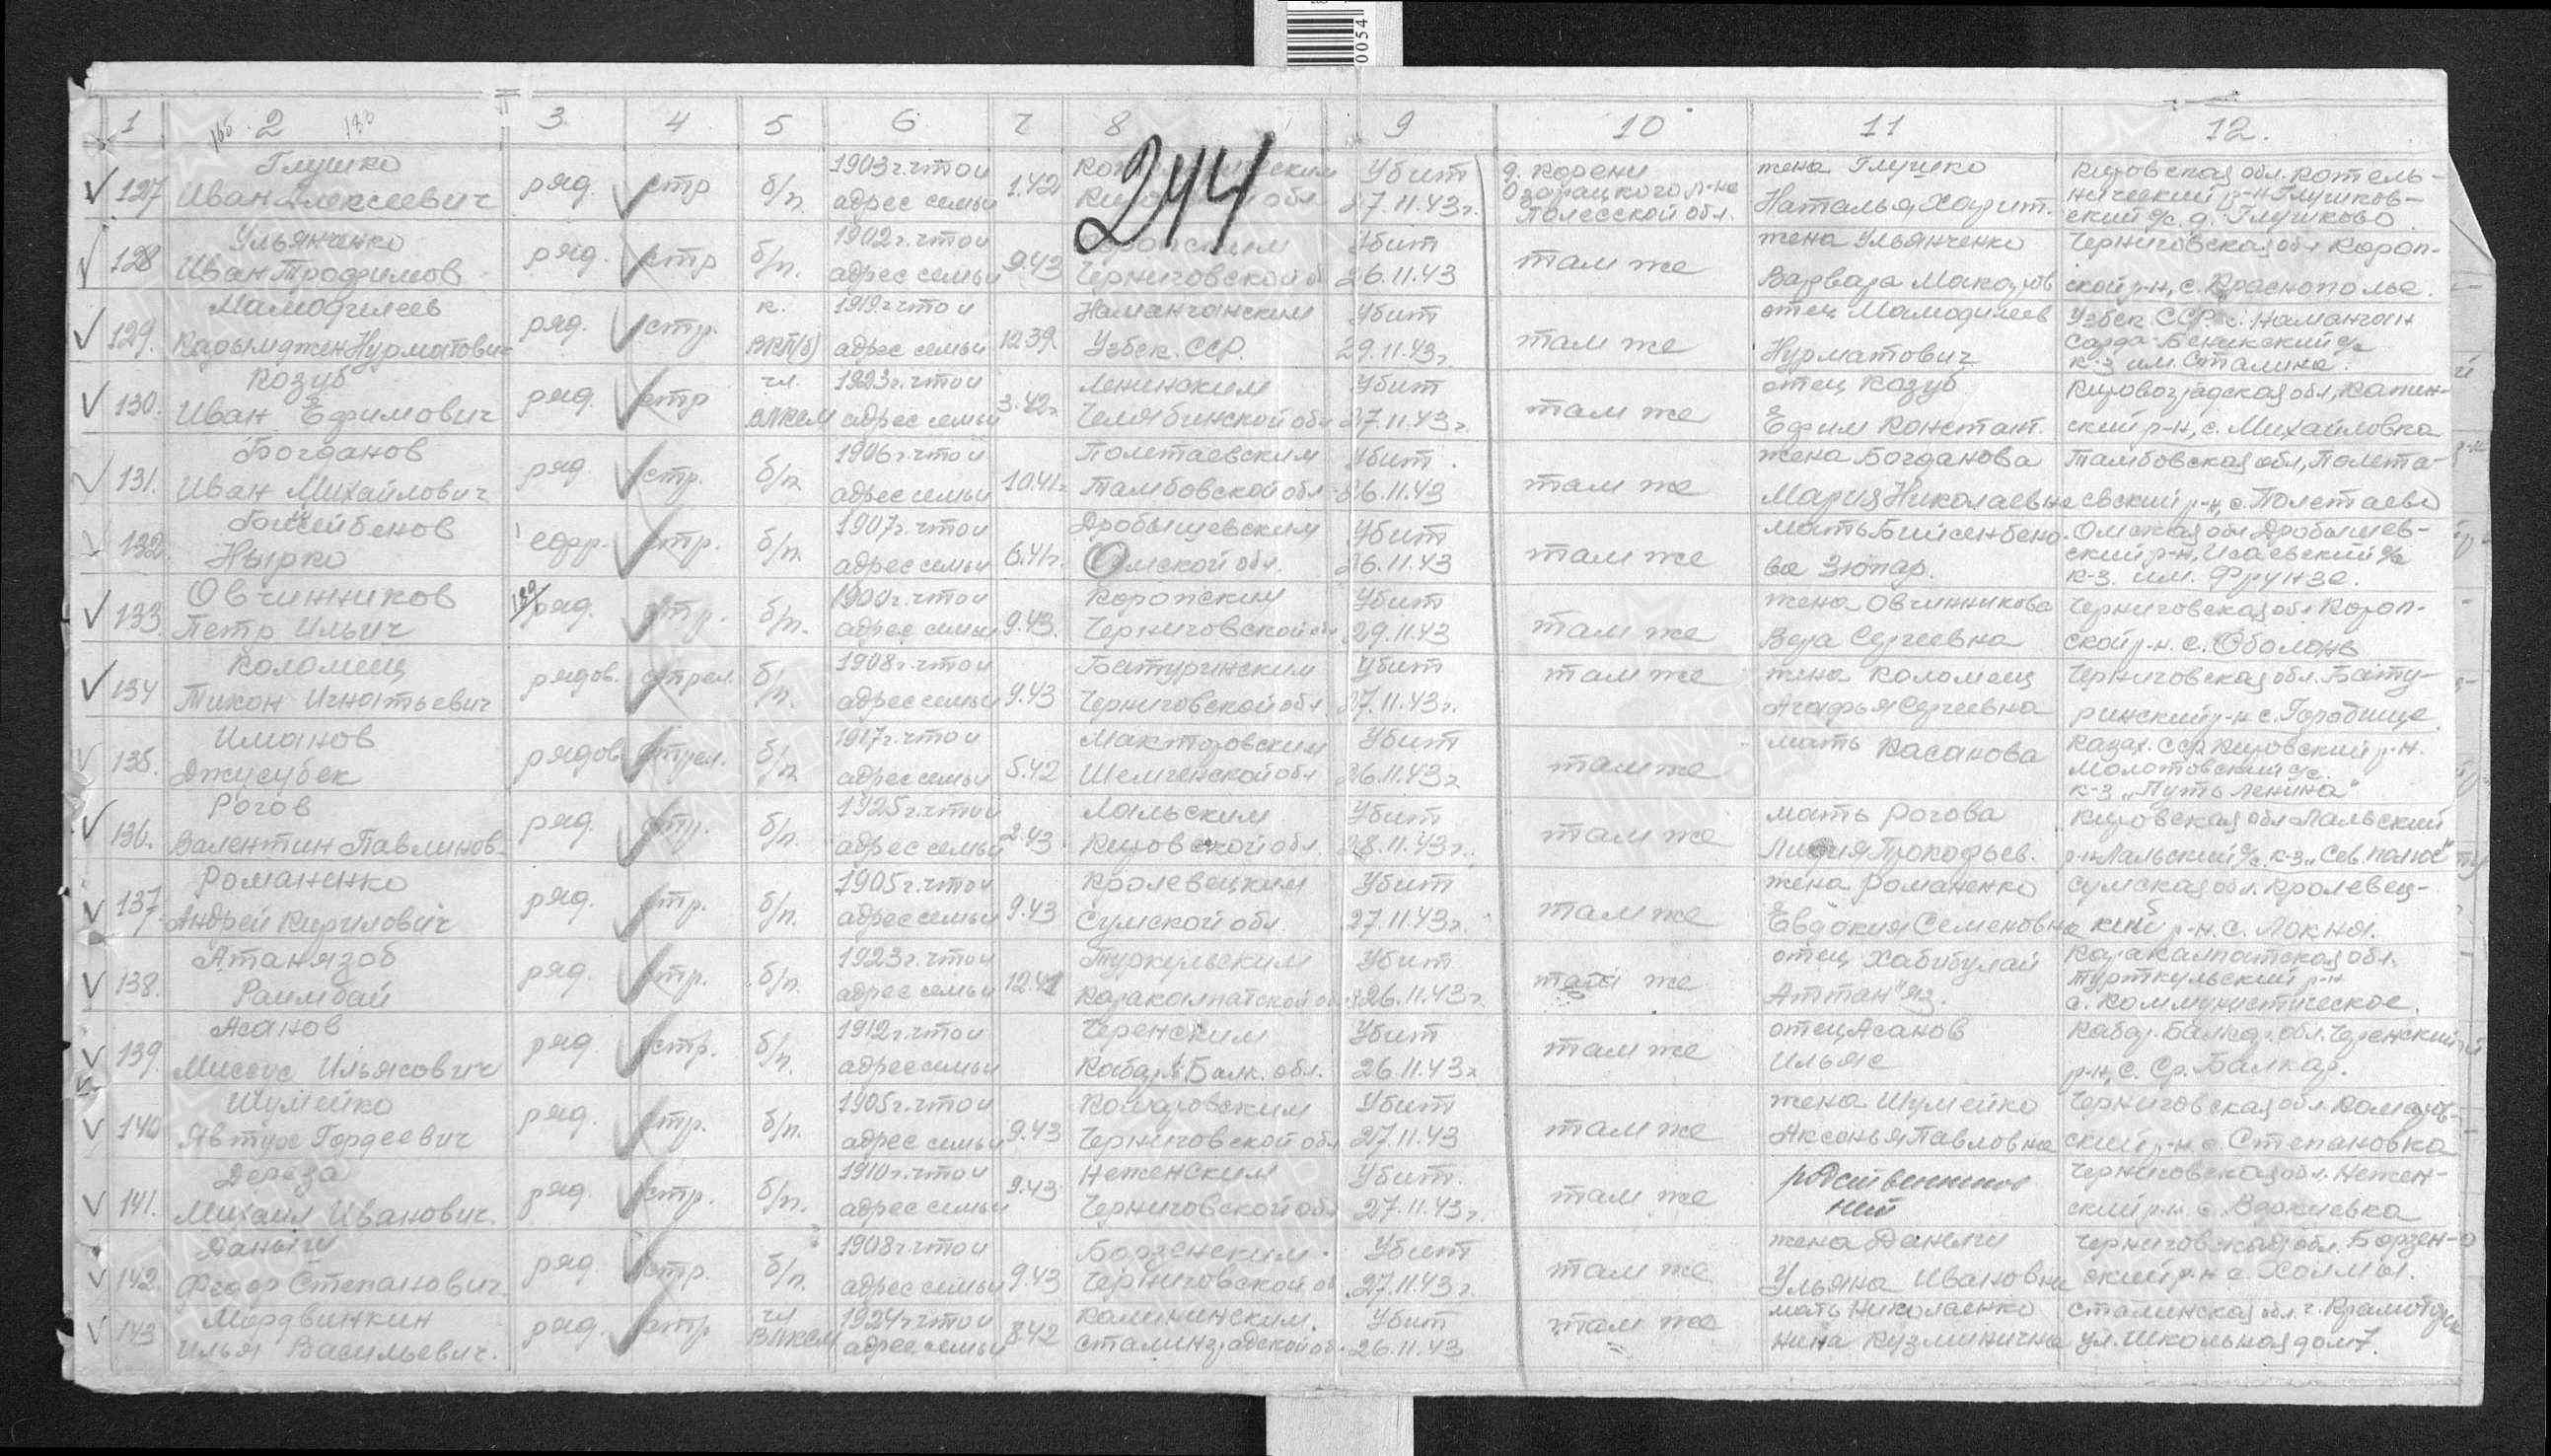 00541
1 2 3 4 5 6 7 8 9 10 11 12.
165. 183
244
127 Глушко Иван Алексеевич ряд. стр б/п. 1903 г. что и адрес семьи 1.42 Убит 27.11.43г. д. Корени Озарицкого р-на Полесской обл. жена Глушко Наталья Харит. Кировская обл. Котельнический р-н Глушковский с/с д. Глушково
128 Ульянченко Иван Трофимов ряд. стр б/п. 1902 г. что и адрес семьи 9.43 Черниговской о Убит 26.11.43 там же жена Ульянченко Варвара Макаров Черниговская обл Короп-ской р-н, с. Краснополье.
129. Мамодилеев Карымджен Нурматович ряд. стр. к. ВКП(б) 1919 г. что и адрес семьи 12.39 Наманганским Узбек. ССР. Убит 29.11.43г. там же отец Мамодилеев Нурматович Узбек. ССР. г. Наманган к-з им. Сталина.
130. Козуб Иван Ефимович ряд. стр чл. ВЛКСМ 1923 г. что и адрес семьи 3.42г. Ленинским Челябинской обл Убит 27.11.43г. там же отец Козуб Ефим Констант. Кировоградская обл, ский р-н, с. Михайловка
131. Богданов Иван Михайлович ряд. стр. б/п 1906 г. что и адрес семьи 10.41г. Полетаевским Тамбовской обл Убит. 26.11.43 там же жена Богданова Мария Николаевна Тамбовская обл, Полета-евский р-н, с. Полетаево
132. Нырко ефр. стр. б/п. 1907 г. что и адрес семьи 6.41г. Дробышевским Омской обл. Убит 26.11.43 там же мать ва Зюпар. Омская обл Дробышев-ский р-н, Исаевский с/с к-з. им. Фрунзе.
133. Овчинников Петр Ильич ряд. стр. б/п. 1900 г. что и адрес семьи 9.43. Коропским Черниговской обл Убит 29.11.43 там же жена Овчинникова Вера Сергеевна Черниговская обл Короп-ской р-н. с. Оболонь
134 Коломиец Тихон Игнатьевич рядов. стрел. б/п. 1908 г. что и адрес семьи 9.43 Батуринским Черниговской обл. Убит 27.11.43г. там же жена Коломиец Агафья Сергеевна Черниговская обл. Бату-ринский р-н с.
135. Иманов Джусубек рядов стрел. б/п 1917 г. что и адрес семьи 5.42 Убит 26.11.43г там же мать Касанова Казах. ССР Кировский р-н. Молотовский с/с. к-з „Путь Ленина"
136. Рогов Валентин Павлинов. ряд. стр. б/п. 1925 г. что и адрес семьи 2.43 Лальским Кировской обл. Убит 28.11.43г. там же мать Рогова Лидия Прокофьев. Кировская обл Лальский р-н Лальский с/с, к-з „Сев. полюс"
137. Романенко Андрей Кирилович ряд. стр. б/п. 1905 г. что и адрес семьи 9.43 Кролевецким Сумской обл Убит 27.11.43г. там же жена Романенко Евдокия Семеновна Сумская обл. Кролевец-кий р-н. с. Локня.
138. Атаниязоб Раимбай ряд. стр. б/п. 1923 г. что и адрес семьи 12.41 Туркульским Каракалпатской об. Убит 26.11.43г. там же отец Хабибулай Аттанияз. Каракалпатская обл. Турткульский р-н с. Коммунистическое.
139. Асанов Мисоус Ильясович ряд. стр. б/п. 1912 г. что и адрес семьи Черенским Кабар. Балк. обл. Убит 26.11.43г там же отец Асанов Ильяс Кабар. Балкар. обл. Черенский р-н, с. Ср. Балкар.
140 Шумейко Автуос Гордеевич ряд. стр. б/п. 1905 г. что и адрес семьи 9.43 Комаровским Черниговской обл Убит 27.11.43 там же жена Шумейко Аксенья Павловна Черниговская обл. Комаров-ский р-н с Степановка
141. Дереза Михаил Иванович. ряд. стр. б/п. 1910 г. что и адрес семьи 9.43. Неженским Черниговской обл Убит. 27.11.43г. там же родственников нет Черниговская обл. Нежен-ский р-н. с. Веркиевка
142. Федор Степанович. ряд. стр. б/п. 1908 г. что и адрес семьи 9.43 Борзенским Черниговской об Убит 27.11.43г. там же жена Ульяна Ивановна Черниговская обл. Борзен-ский р-н с. Холмы.
143 Мордвинкин Илья Васильевич. ряд. стр чл ВЛКСМ 1924 г. что и адрес семьи 8.42 Калининским. Сталинградской об. Убит 26.11.43 там же мать Николаенко Нина Кузминична Сталинская обл. г. Краматорск ул. Школьная дом 7.